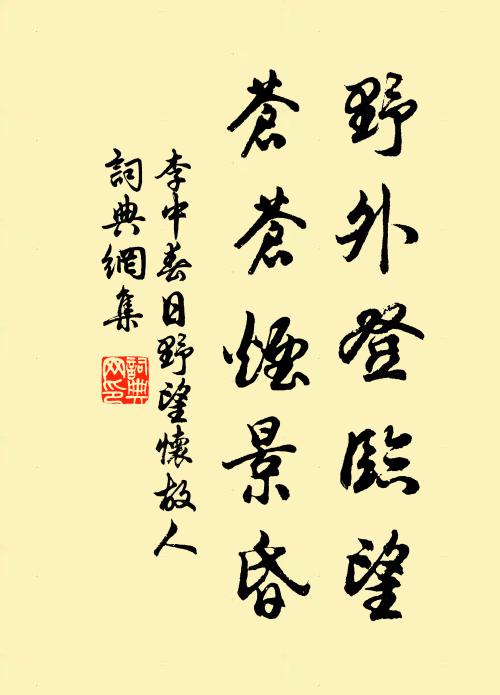 野外登臨望
蒼蒼煙景昏
李中春日野望懷故人
詞典網集
詞典网印